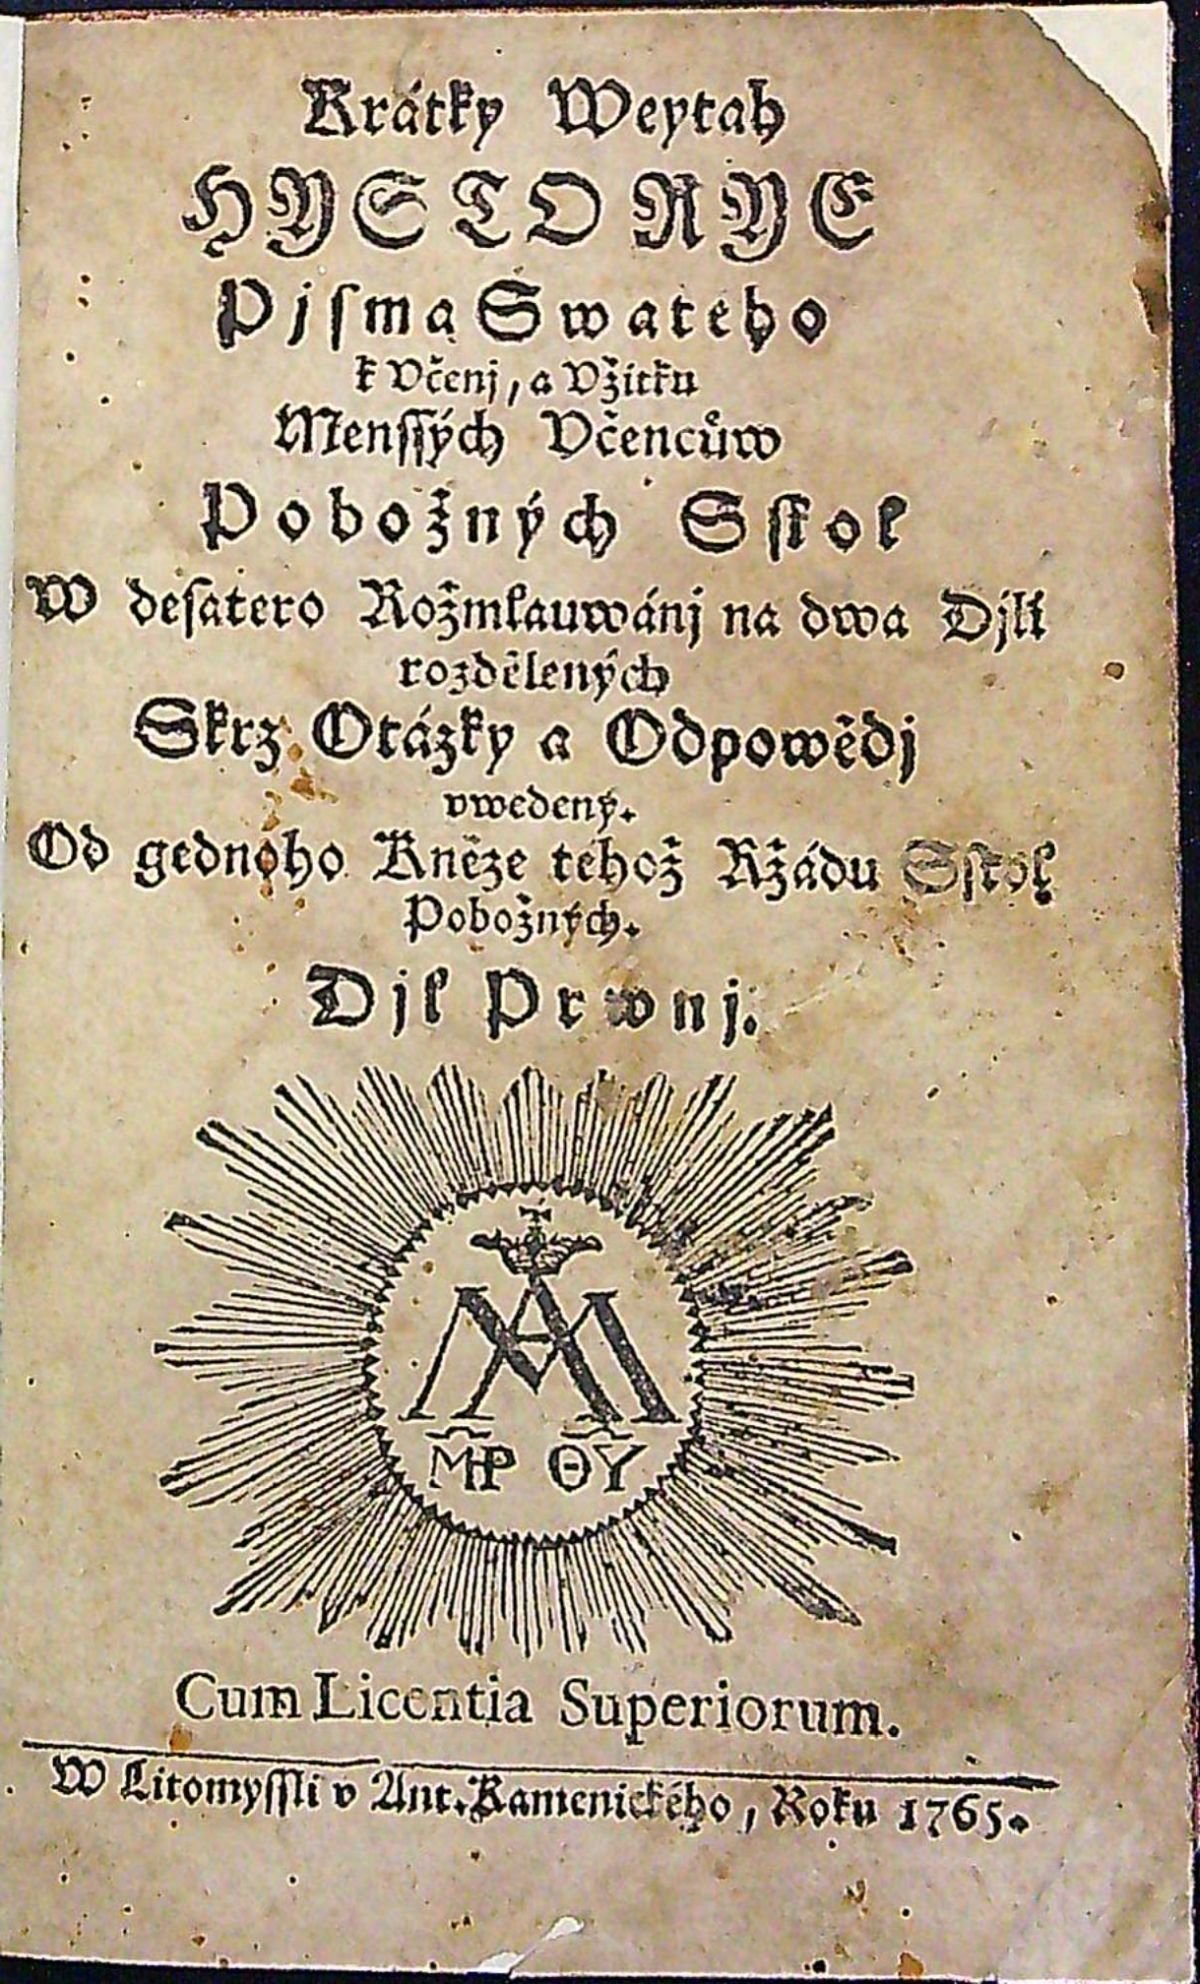 Krátky Weytah
HYSTORYE
Pjsma Swateho
k Včenj, a Vžitku
Menssých Včencůw
Pobožných Sskol
W desatero Rožmlauwánj na dwa Djlí
rozdělených
Skrz Otázky a Odpowědj
vwedený.
Od gednoho Kněze téhož Ržádu Sskol
Pobožných.
Djl Prwnj.
MA
MHP ΘY
Cum Licentia Superiorum.
W Litomyssli v Ant. Kamenického, Roku 1765.